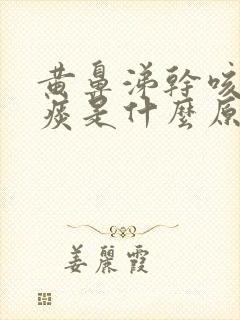 黄鼻涕幹咳
痰是什麼原
姜麗霞